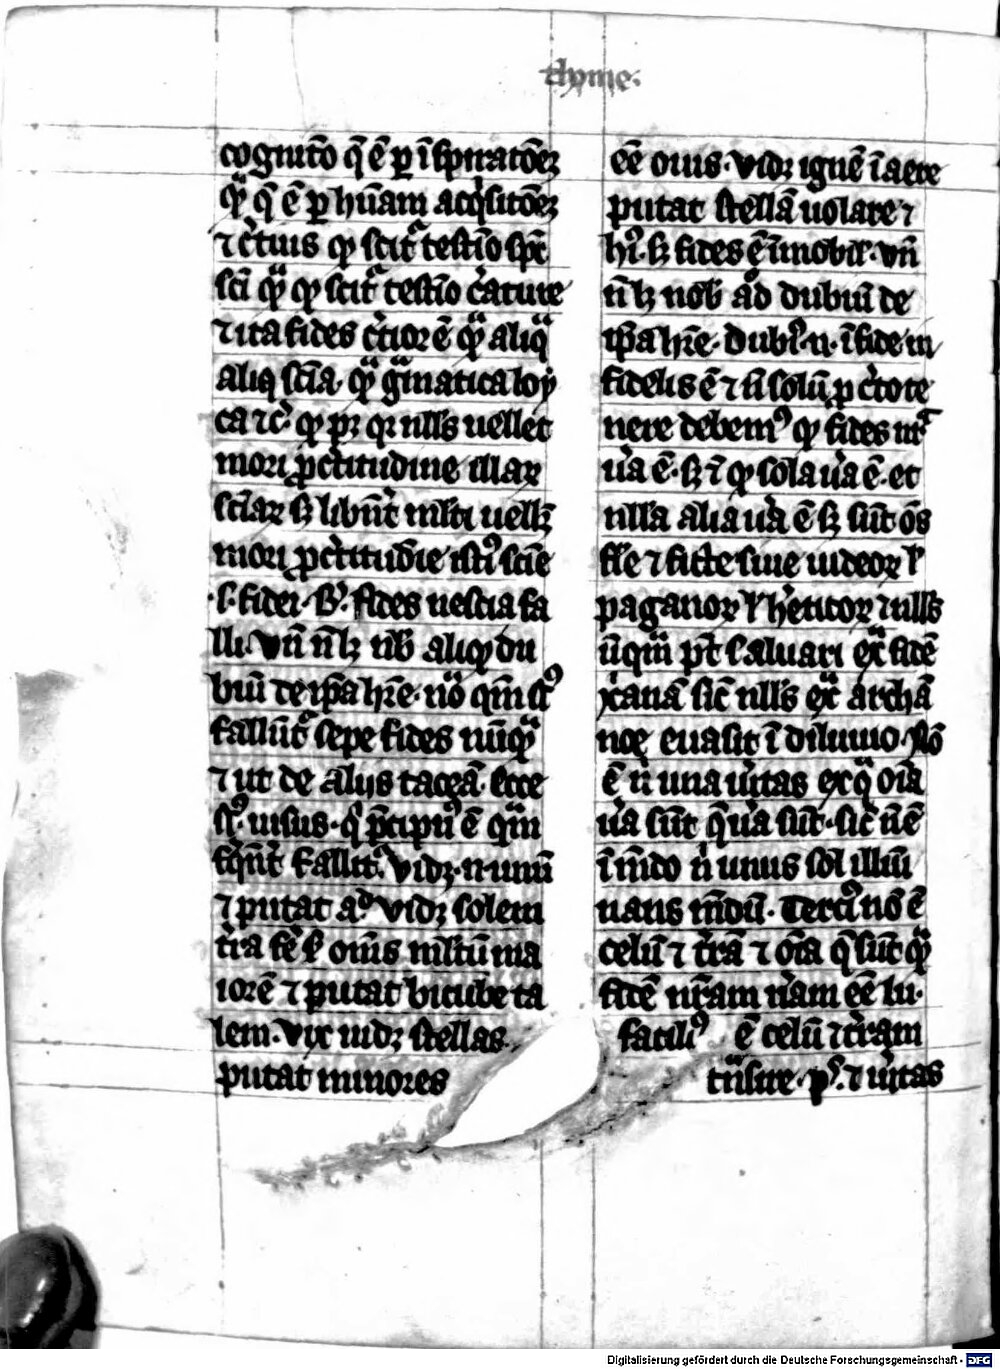 thyme.
cognit̄o q̄ ē ꝑ ī spirac̄oēꝫ
q̄ q̄ ē ꝑ hūam acq̇sit̄oēꝫ
⁊ c̄tius ꝙ scit᷑ testīo sp̄c
sc̄i q̄ꝫ ꝙ scit᷑ testīo c̄ature
⁊ ita fides c̄tior ē q̄ꝫ aliq̄
aliq̄ sc̄ia q̄ꝫ ḡmatica loy
ca ⁊c̄ ꝙ pꝫ qꝛ nll̄s uellet
mori ꝓ c̄titudine illaꝝ
sc̄iaꝝ sꝫ libn̄t̄ ml̄ti uellꝫ
mori ꝓ c̄titudīe isti᷒ sc̄ie
.s. fidei. fides nescia fa
lli. vn̄ n̄ lꝫ nob̄ aliqͦ du
biū de ip̄a h̄re. nō qm̄ s᷒
fallūt᷑ sepe fides nūq̄ꝫ
⁊ ut de alijs taceā. ecce
s᷒. uisus. q̇ p̄cipu᷒ ē qm̄
fq̄nt̄ fallit᷑. vidꝫ
⁊ putat aͦd. vidꝫ solem
t̄ra ml̄tū ma
iorē ⁊ putat bicube ta
lem. vix uidꝫ stellas.
putat minores
eē ouis. vidꝫ ignē ī aere
putat stellā uolare ⁊
h᷒. sꝫ fides ē īmobil̄. vn̄
n̄ lꝫ nob̄ aͦd dubiū de
ip̄a h̄re. dubi᷒. n. ī fide in
fidelis ē ⁊ n̄ solū ꝓ c̄to te
nere debem᷒ ꝙ fides nr̄a
ūa ē. sꝫ ⁊ ꝙ sola ūa ē. et
nll̄a alia ūa ē sꝫ sūt ōs
fl̄e ⁊ ficte siue iudeoꝝ ł
paganoꝝ ł h̄eticoꝝ ⁊ nll̄s
ūqm̄ pt̄ saluari ex̄ fidē
xanā sic̄ nll̄s ex̄ archā
noe euasit ī diluuio. Nō
ē n̄ una ūitas ex q̄ oīa
ūa sūt q̄ ūa sūt. sic̄ n̄ ē
ī m̄do n̄ unus sol illūi
nans mūdū. Terci᷒ nō ē
celū ⁊ t̄rā ⁊ oīa q̄ sūt q̄ꝫ
fidē nr̄am ūam eē lu.
facili᷒ ē celū ⁊ t̄ram
t̄nsire. ⁊ ūitas
Digitalisierung gefördert durch die Deutsche Forschungsgemeinschaft - DFG